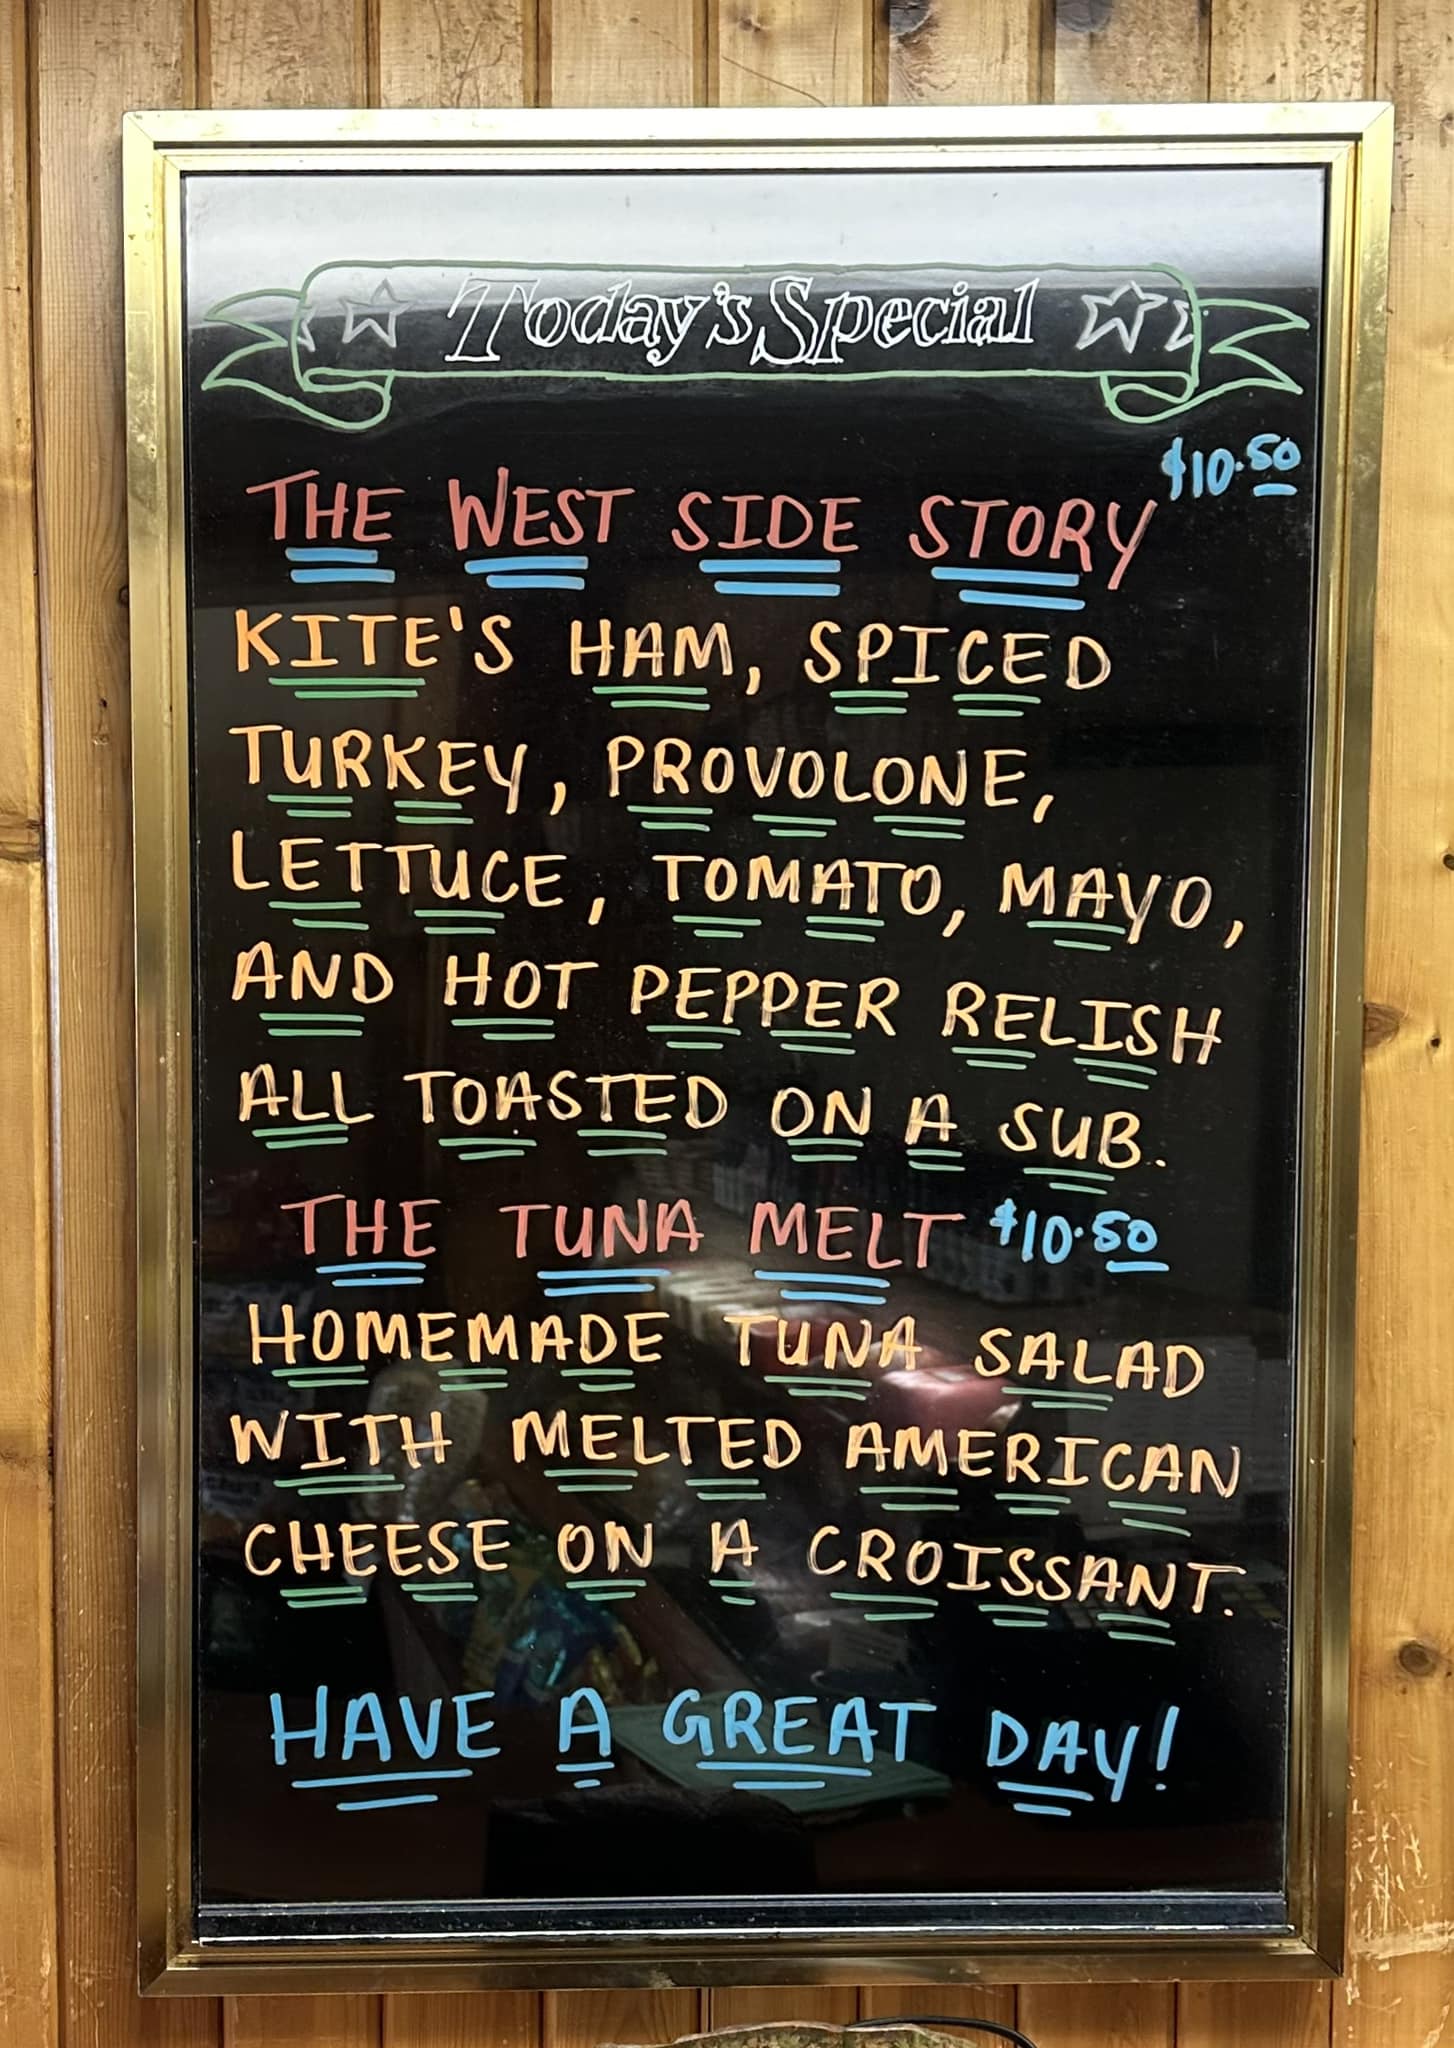 Today's Special
$10.50
THE WEST SIDE STORY
KITE'S HAM, SPICED
TURKEY, PROVOLONE,
LETTUCE, TOMATO, MAYO,
AND HOT PEPPER RELISH
ALL TOASTED ON A SUB.
THE TUNA MELT $10.50
HOMEMADE TUNA SALAD
WITH MELTED AMERICAN
CHEESE ON A CROISSANT.
HAVE A GREAT DAY!